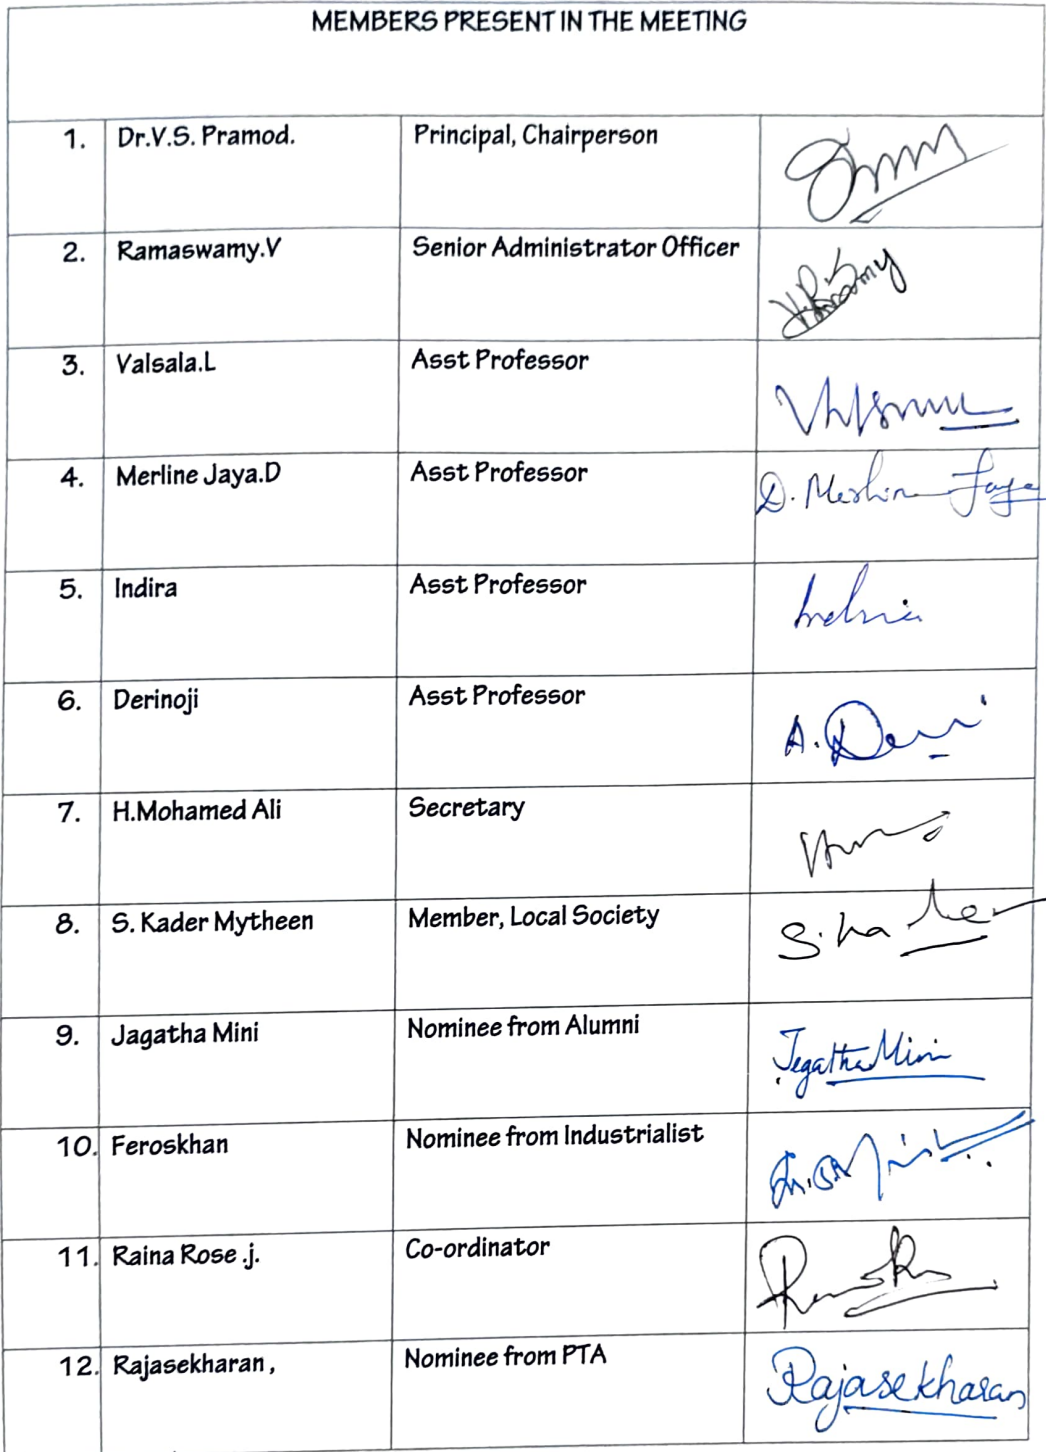 MEMBERS PRESENT IN THE MEETING
1. Dr.V.S. Pramod. Principal, Chairperson
2. Ramaswamy.V Senior Administrator Officer
3. Valsala.L Asst Professor
4. Merline Jaya.D Asst Professor D. Merline Jaya
5. Indira Asst Professor Indira
6. Derinoji Asst Professor
7. H.Mohamed Ali Secretary
8. S. Kader Mytheen Member, Local Society
9. Jagatha Mini Nominee from Alumni Jegatha Mini
10. Feroskhan Nominee from Industrialist
11. Raina Rose .j. Co-ordinator
12. Rajasekharan , Nominee from PTA Rajasekharan